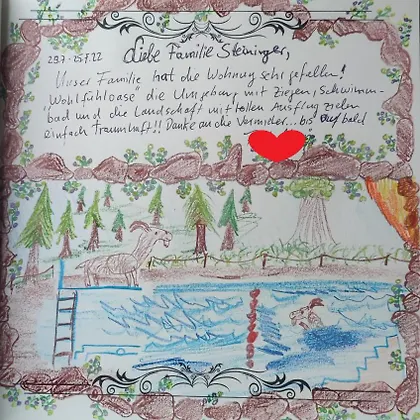 Liebe Familie Steininger,
29.7 - 05.8.22
Unser Familie hat die Wohnung sehr gefallen!
"Wohlfühloase" die Umgebung mit Ziegen, Schwimm-
bad und die Landschaft mit tollen Ausflug zielen
einfach Traumhaft!! Danke an die Vermieter... bis auf bald